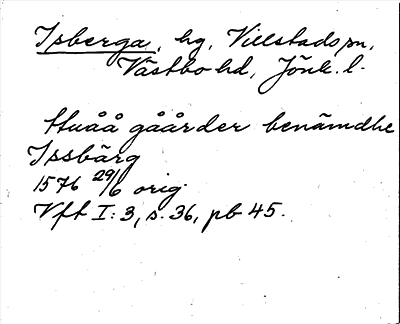 Isberga, hg, Villstads sn,
Västbo hd, Jönk. l.
Huåå gåårder benämdhe
Issbärg
1576 29/6 orig.
Vft I: 3, s. 36, pb 45.